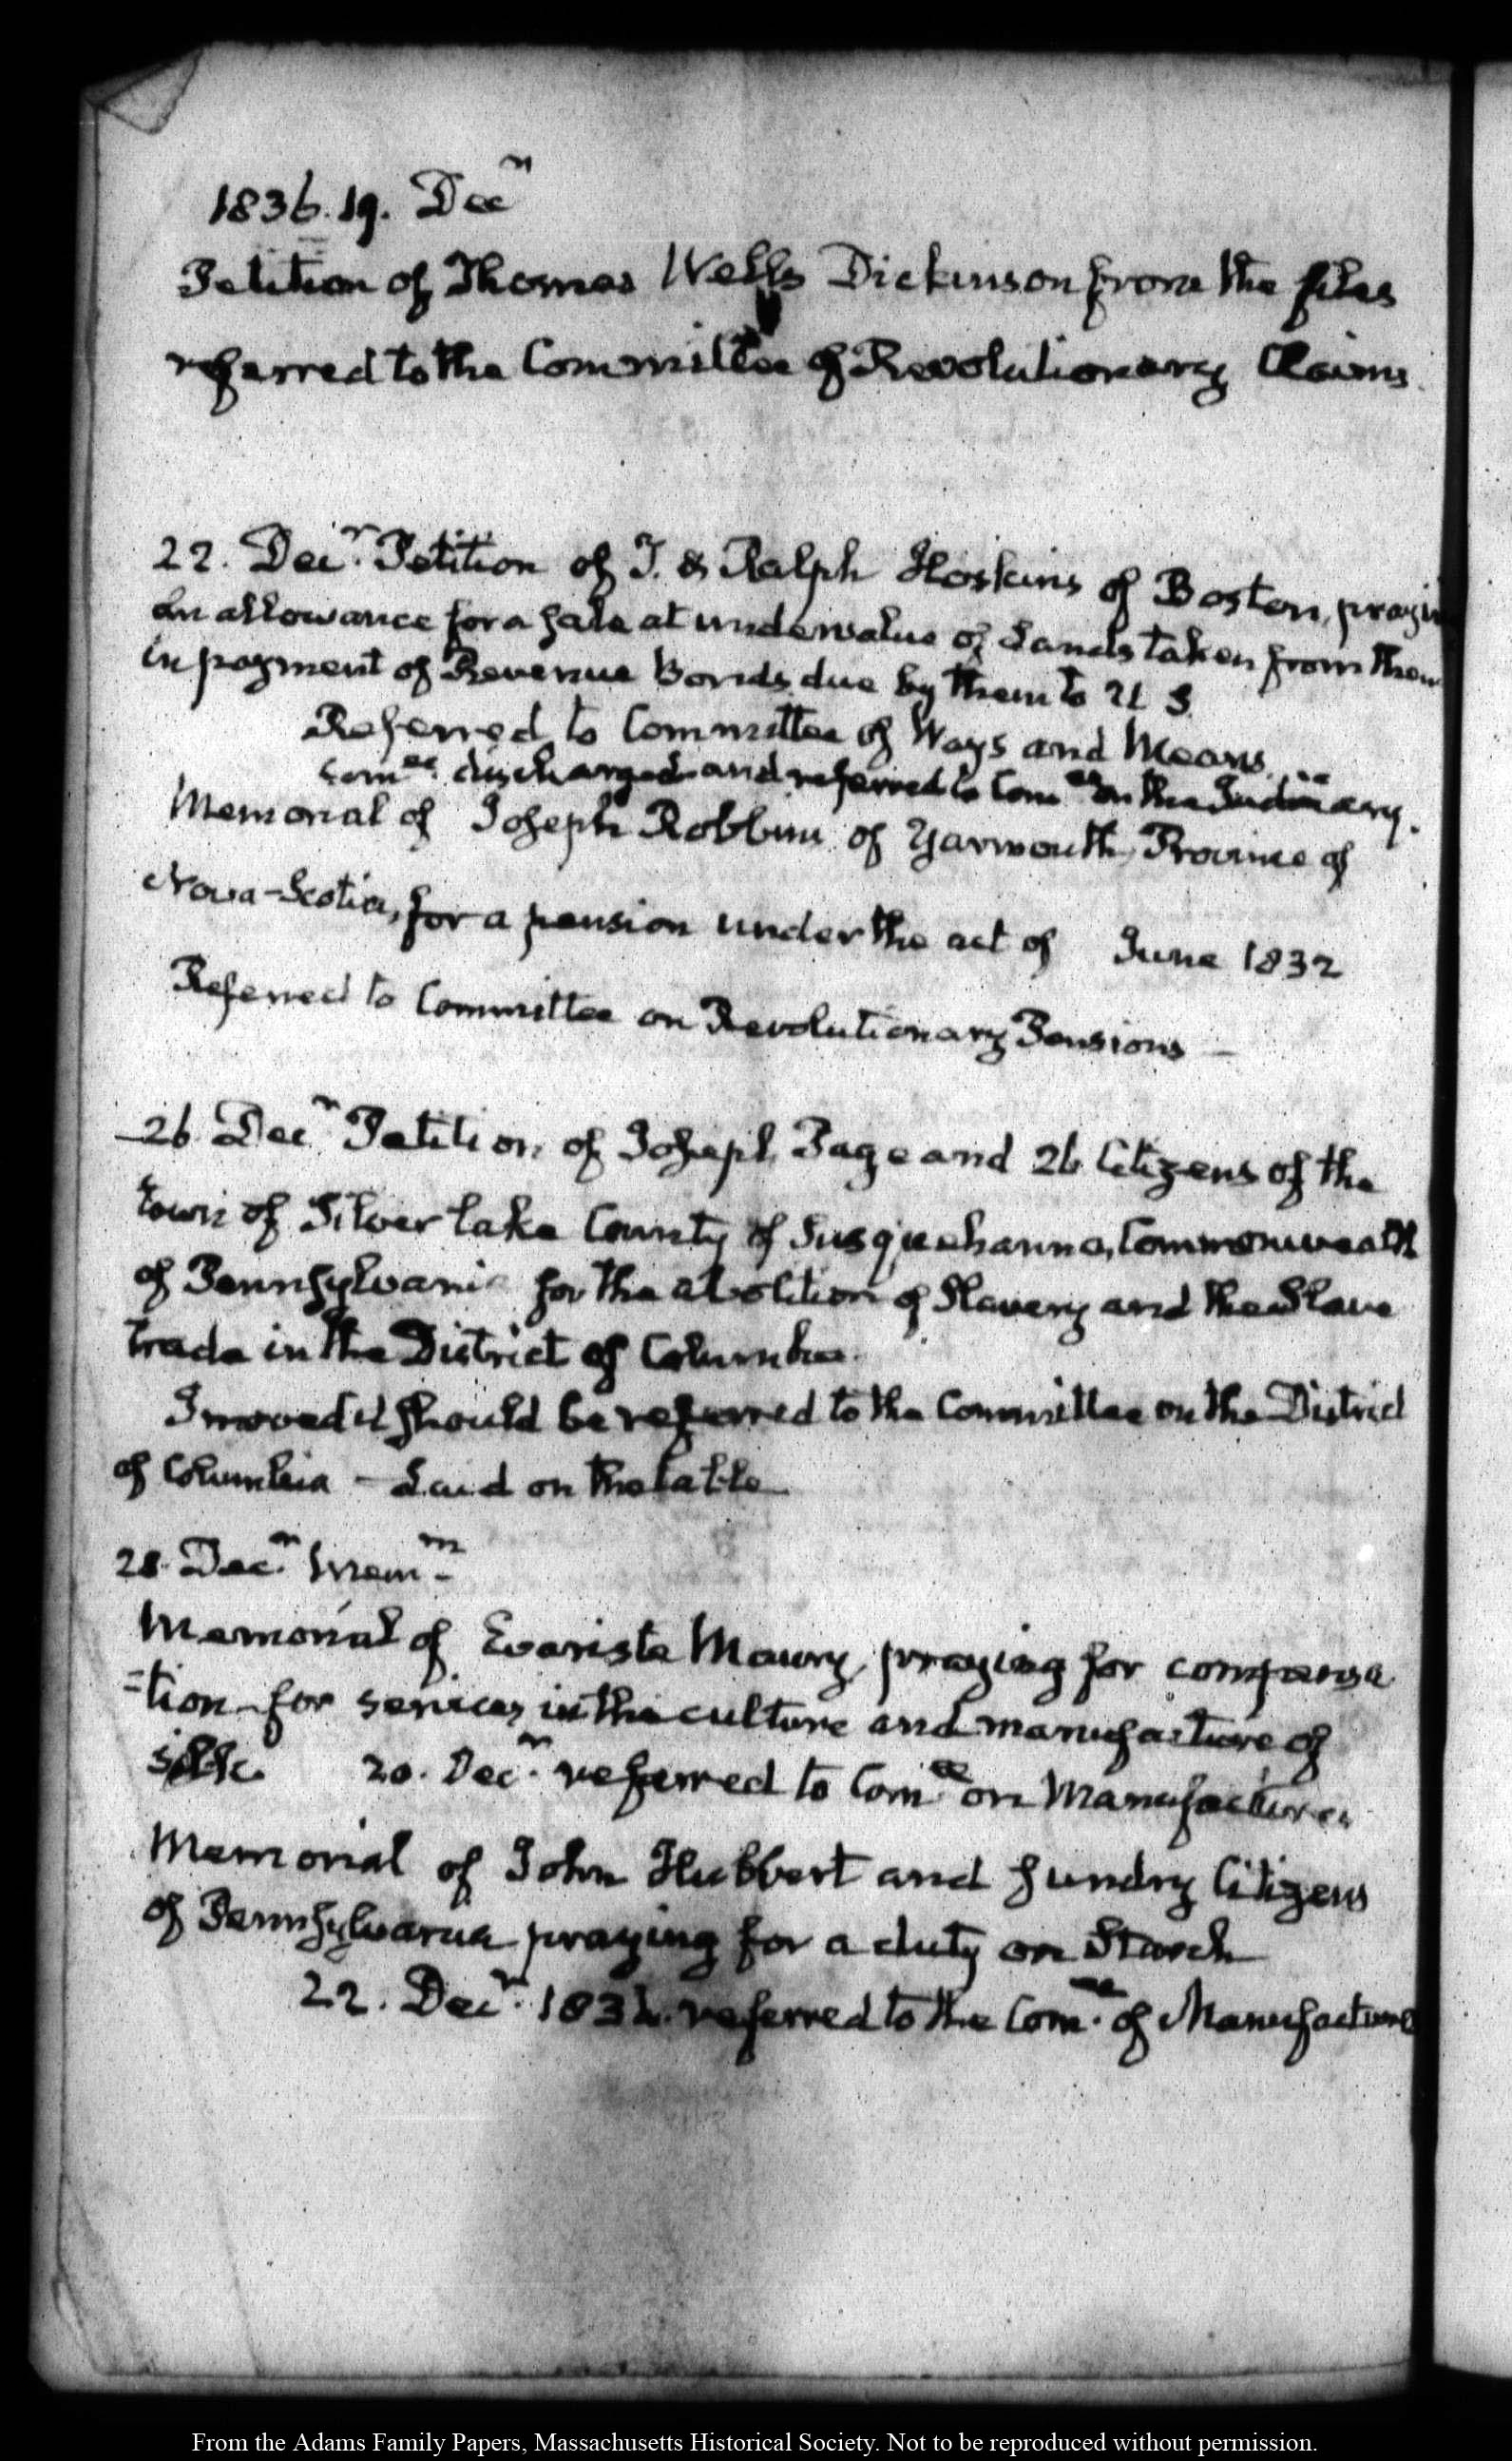 1836. 19. Decr
Petition of Thomas Wells Dickinson from the files
referred to the Committee of Revolutionary Claims.
22. Decr. Petition of J. & Ralph Hoskins of Boston, prayin
an allowance for a sale at undervalue of Lands taken from them
in payment of Revenue Bonds due by them to U S.
Referred to Committee of Ways and Means.
Comee. discharged and referred to Comee on the Judiciary.
Memorial of Joseph Robbins of Yarmouth, Province of
Nova-Scotia, for a pension under the act of June 1832
Referred to Committee on Revolutionary Pensions —
26 Decr Petition of Joseph Page and 26 Citizens of the
town of Silver lake County of Susquehanna, Commonwealth
of Pennsylvania for the abolition of Slavery and the Slave
trade in the District of Columbia.
I moved it should be referred to the Committee on the District
of Columbia — Laid on the table
28. Decr. Mem
Memorial of Evariste Maury, praying for compensa
-tion for services in the culture and manufacture of
silk. 20. Decr. referred to Comee on Manufactures
Memorial of John Hubbert and sundry Citizens
of Pennsylvania praying for a duty on Starch
22. Decr. referred to the Comee. of Manufactures
From the Adams Family Papers, Massachusetts Historical Society. Not to be reproduced without permission.